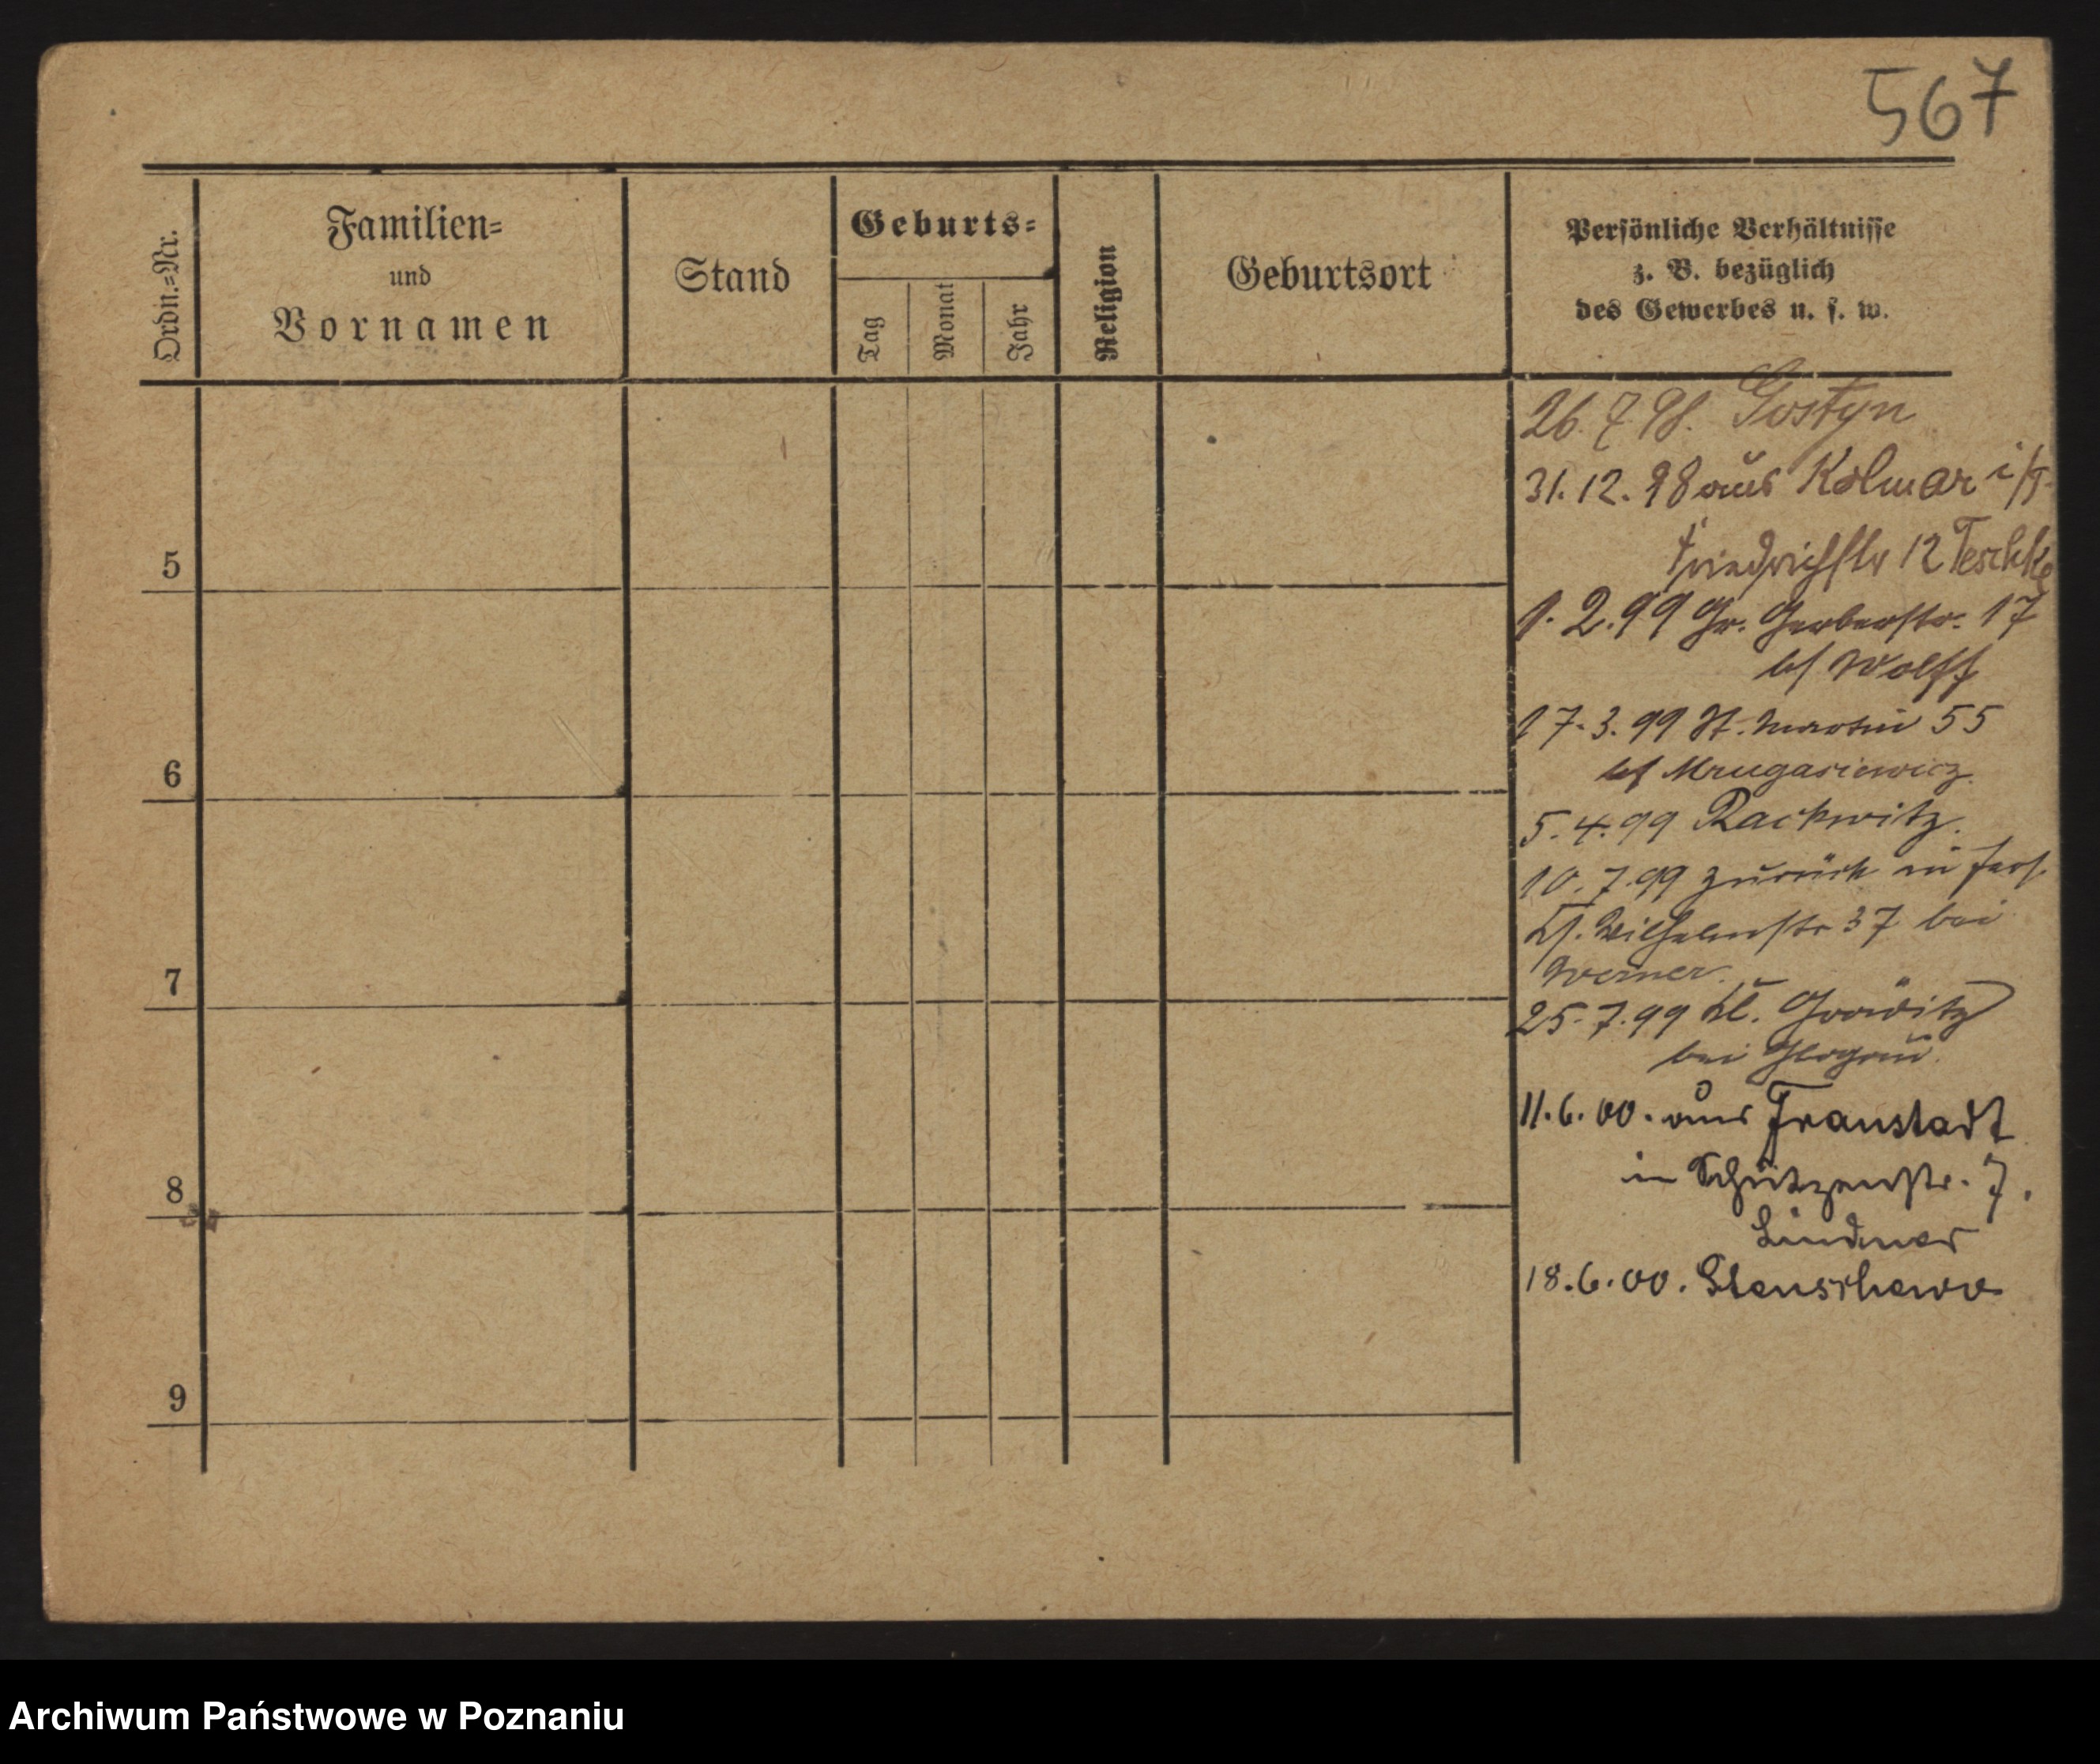 567
Ordn.=Nr.
Familien=
und
Vornamen
Stand
Geburts=
Tag
Monat
Jahr
Religion
Geburtsort
Persönliche Verhältnisse
z. B. bezüglich
des Gewerbes u. s. w.
26. 7 98. Gostyn
31. 12. 98 aus Kolmar i/P.
Friedrichstr 12 Teschke
5
1. 2. 99 Gr. Gerberstr. 17
bei Wolff
17. 3. 99 St. Martin 55
bei Mrugasiewicz.
6
5. 4. 99 Rackwitz.
10. 7. 99 zurück in
Wilhelmstr 37 bei
Werner.
7
25. 7. 99 Kl. Gräditz
bei Glogau.
11. 6. 00. aus Fraustadt
in Schützenstr. 7.
8
Lindner
18. 6. 00. Stenschewo
9
Archiwum Państwowe w Poznaniu